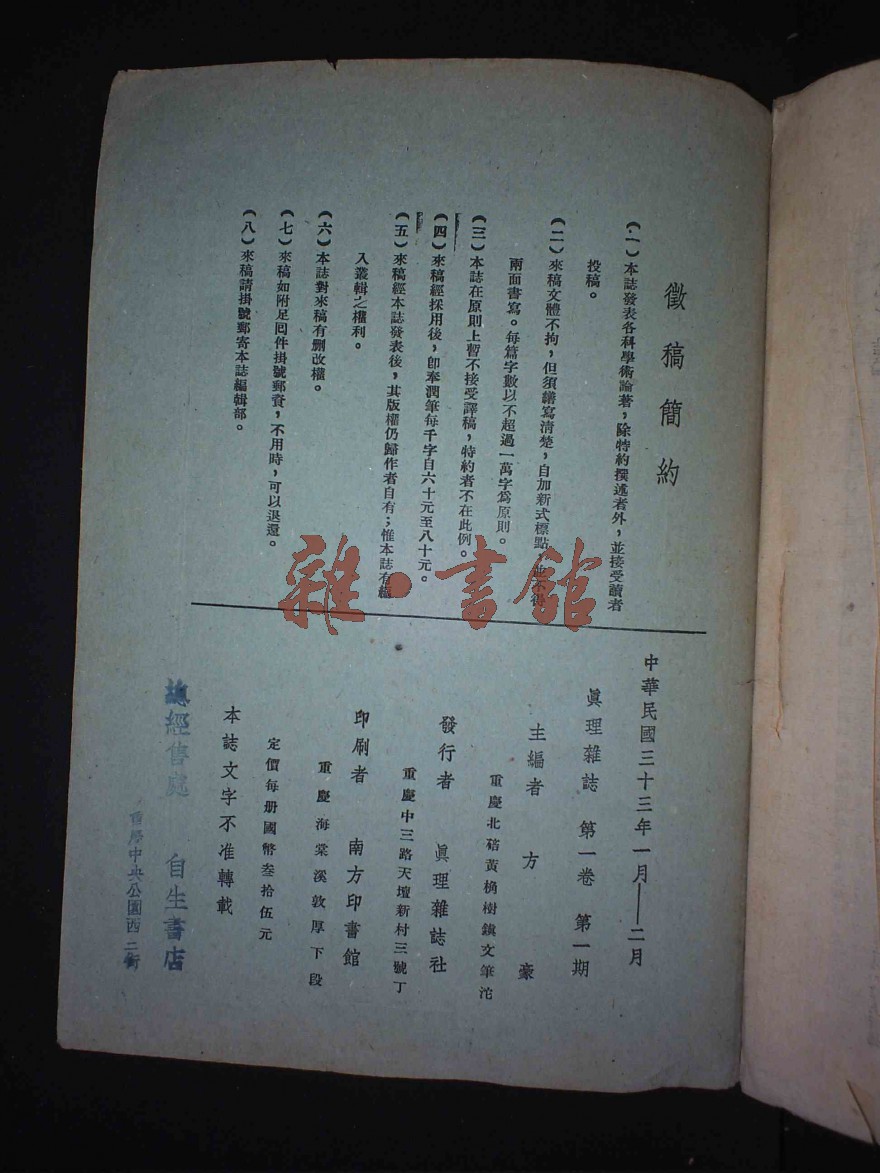 徵稿簡約
(一)本誌發表各科學術論著,除特約撰述者外,並接受讀者
投稿。
(二)來稿文體不拘,但須繕寫清楚,自加新式標點,並不得
兩面書寫。每篇字數以不超過一萬字爲原則。
(三)本誌在原則上暫不接受譯稿,特約者不在此例。
(四)來稿經採用後,卽奉潤筆每千字自六十元至八十元。
(五)來稿經本誌發表後,其版權仍歸作者自有;惟本誌有編
入叢輯之權利。
(六)本誌對來稿有删改權。
(七)來稿如附足囘件掛號郵資,不用時,可以退還。
(八)來稿請掛號郵寄本誌編輯部。
中華民國三十三年一月——二月
眞理雜誌 第一卷 第一期
主編者 方 豪
重慶北碚黃桷樹鎭文筆沱
發行者 眞理雜誌社
重慶中三路天壇新村三號丁
印刷者 南方印書館
重慶海棠溪敦厚下段
定價每册國幣叁拾伍元
本誌文字不准轉載
總經售處 自生書店
重慶中央公園西二街
雜·書館